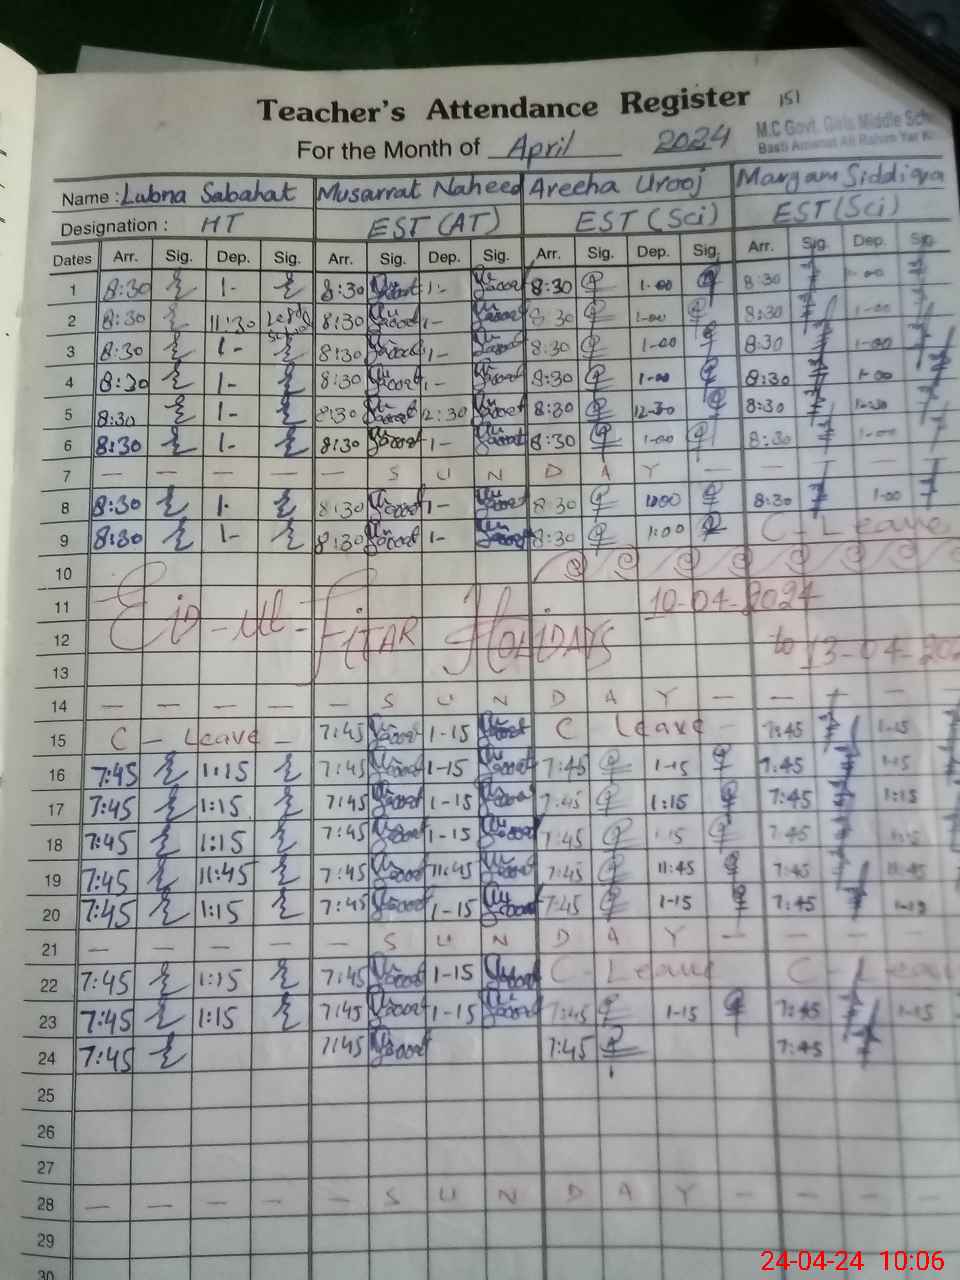 Teacher's Attendance Register 151
For the Month of April 2024 M.C Govt. Girls Middle
Basti Amanat Ali Rahim Yar
Name : Lubna Sabahat Musarrat Naheed Areeha Urooj Maryam Siddiqa
Designation : HT EST (AT) EST (Sci) EST (Sci)
Dates Arr. Sig. Dep. Sig. Arr. Sig. Dep. Sig. Arr. Sig. Dep. Sig. Arr. Sig. Dep. Sig.
1 8:30 1- 8:30 1- 8:30 1-00 8:30 1-00
2 8:30 11:30 8:30 1- 8:30 1-00 8:30 1-00
3 8:30 1- 8:30 1- 8:30 1-00 8:30 1-00
4 8:30 1- 8:30 1- 8:30 1-00 8:30 1-00
5 8:30 1- 8:30 12:30 8:30 12-30 8:30
6 8:30 1- 8:30 1- 8:30 1-00 8:30 1-00
7 — — — — — S U N D A Y — — — —
8 8:30 1- 8:30 1- 8:30 1:00 8:30 1-00
9 8:30 1- 8:30 1- 8:30 1:00 C - Leave
10
11 Eid-ul-Fitar Holidays 10-04-2024
12 to 13-04-202
13
14 — — — — — S U N D A Y — — — —
15 C - Leave - 7:45 1-15 C - Leave - 7:45 1-15
16 7:45 1:15 7:45 1-15 7:45 1-15 7:45 1-15
17 7:45 1:15 7:45 1-15 7:45 1:15 7:45 1:15
18 7:45 1:15 7:45 1-15 7:45 1:15 7:45
19 7:45 11:45 7:45 11:45 7:45 11:45 7:45 11:45
20 7:45 1:15 7:45 1-15 7:45 1-15 7:45 1-15
21 — — — — — S U N D A Y — — — —
22 7:45 1:15 7:45 1-15 C - Leave C - Leave
23 7:45 1:15 7:45 1-15 7:45 1-15 7:45 1-15
24 7:45 7:45 7:45 7:45
25
26
27
28 — — — — — S U N D A Y — — — —
29
30
24-04-24 10:06